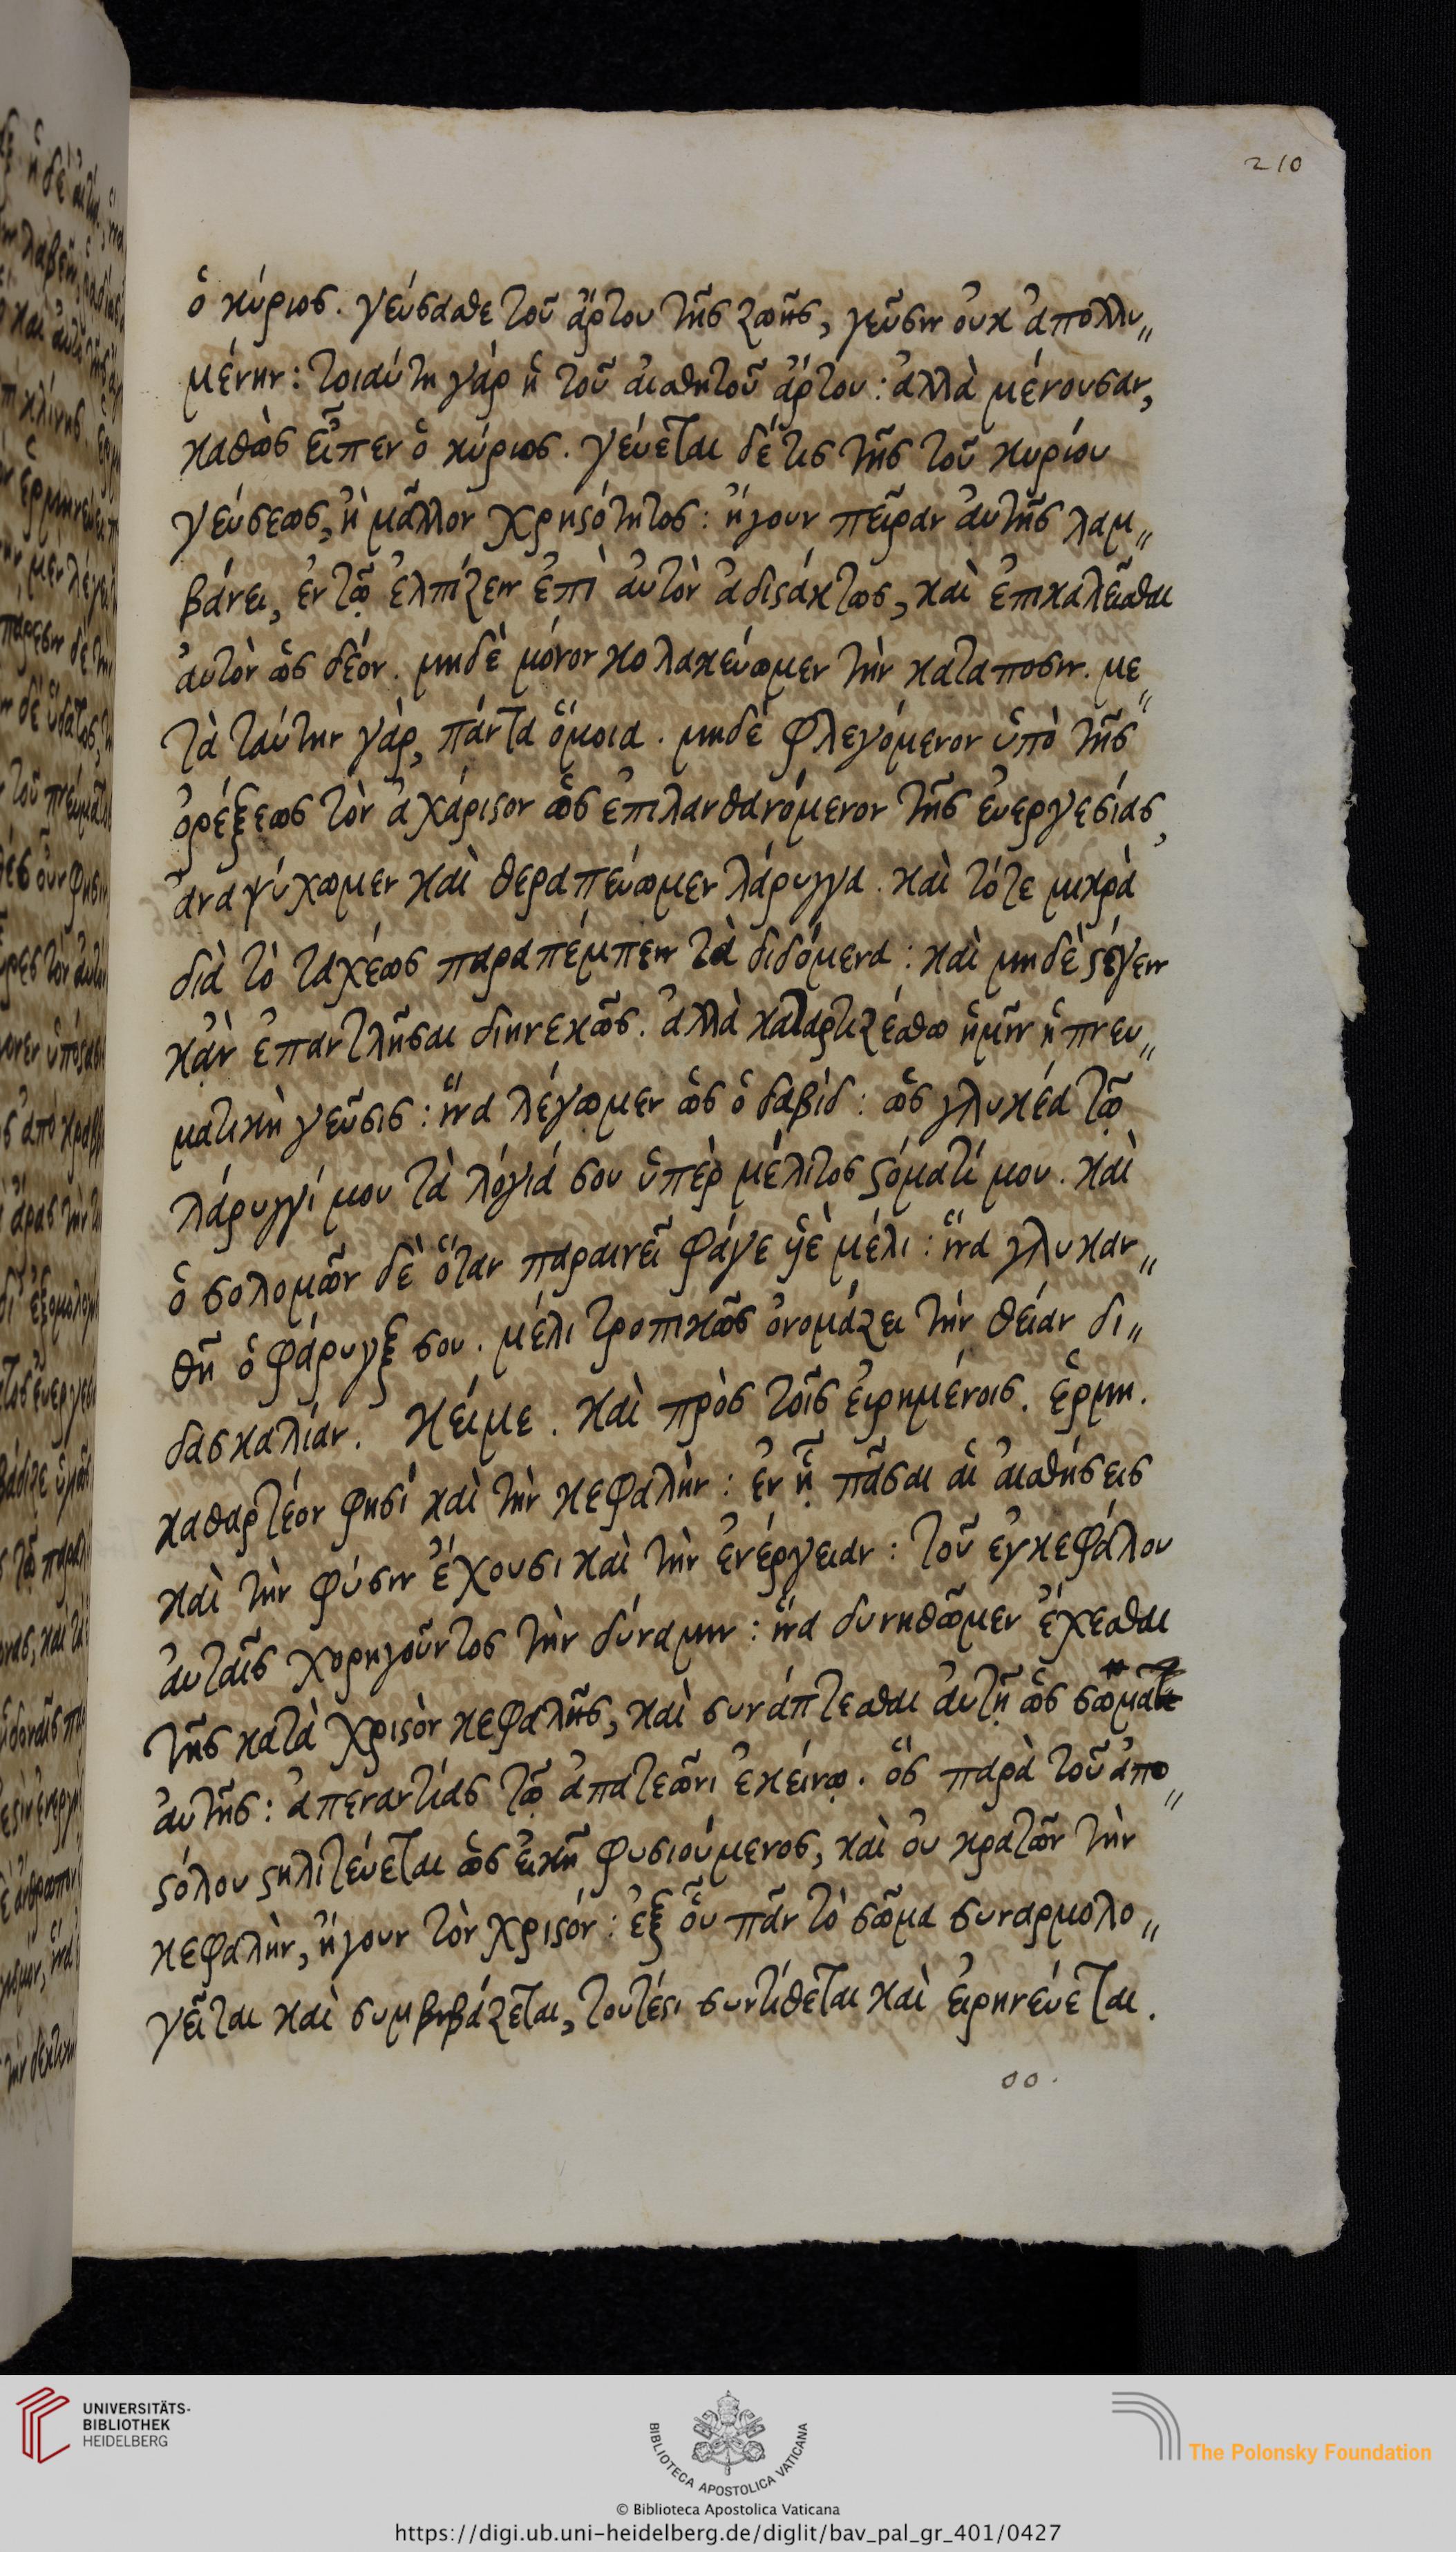 210
ὁ κύριος. γεύσασθε τοῦ ἄρτου τῆς ζωῆς, γεῦσιν οὐκ ἀπολλυ„
μένην: τοιαύτη γάρ ἡ τοῦ αἰσθητοῦ ἄρτου: ἀλλὰ μένουσαν,
καθὼς εἶπεν ὁ κύριος. γεύεται δέ τις τῆς τοῦ κυρίου
γεύσεως, ἢ μᾶλλον χρηστότητος: ἤγουν πεῖραν αὐτῆς λαμ„
βάνει, ἐν τῷ ἐλπίζειν ἐπὶ αὐτὸν ἀδιστάκτως, καὶ ἐπικαλεῖσθαι
αὐτὸν ὡς δέον. μηδὲ μόνον κολακεύωμεν τὴν καταποσιν. με„
τὰ ταύτην γὰρ, πάντα ὅμοια. μηδὲ φλεγόμενον ὑπὸ τῆς
ὀρέξεως τὸν ἀχάριστον ὡς ἐπιλανθανόμενον τῆς εὐεργεσίας,
ἀναψύχωμεν καὶ θεραπεύωμεν λάρυγγα. καὶ τότε μικρὰ
διὰ τὸ ταχέως παραπέμπειν τὰ διδόμενα: καὶ μηδὲ στέγειν
κἂν ἐπαντλῆσαι διηνεκῶς. ἀλλὰ καταρτιζέσθω ἡμῖν ἡ πνευ„
ματικὴ γεῦσις: ἵνα λέγωμεν ὡς ὁ δαβίδ: ὡς γλυκέα τῷ
λάρυγγί μου τὰ λόγιά σου ὑπὲρ μέλιτος στόματί μου. καὶ
ὁ σολομῶν δὲ ὅταν παραινεῖ φάγε ὑιὲ μέλι: ἵνα γλυκαν„
θῆ ὁ φάρυγξ σου. μέλι τροπικῶς ὀνομάζει τὴν θείαν δι„
δασκαλίαν. κείμε. καὶ πρὸς τοῖς εἰρημένοις. ἑρμη.
καθαρτέον φησί καὶ τὴν κεφαλὴν: ἐν ᾗ πᾶσαι αἱ αἰσθήσεις
καὶ τὴν φύσιν ἔχουσι καὶ τὴν ἐνέργειαν: τοῦ ἐγκεφάλου
αὐταῖς χορηγοῦντος τὴν δύναμιν: ἵνα δυνηθῶμεν ἔχεσθαι
τῆς κατὰ χριστὸν κεφαλῆς, καὶ συνάπτεσθαι αὐτῇ ὡς σῶμα
αὐτῆς: ἀπεναντίας τῷ ἀπατεῶνι ἐκείνῳ. ὃς παρὰ τοῦ ἀπο„
στόλου στηλιτεύεται ὡς εἰκῆ φυσιούμενος, καὶ οὐ κρατῶν τὴν
κεφαλὴν, ἤγουν τὸν χριστόν: ἐξ οὗ πᾶν τὸ σῶμα συναρμολο„
γεῖται καὶ συμβιβάζεται, τουτέστι συντίθεται καὶ εἰρηνεύεται.
UNIVERSITÄTS-
BIBLIOTHEK
HEIDELBERG
BIBLIOTECA APOSTOLICA VATICANA
The Polonsky Foundation
© Biblioteca Apostolica Vaticana
https://digi.ub.uni-heidelberg.de/diglit/bav_pal_gr_401/0427